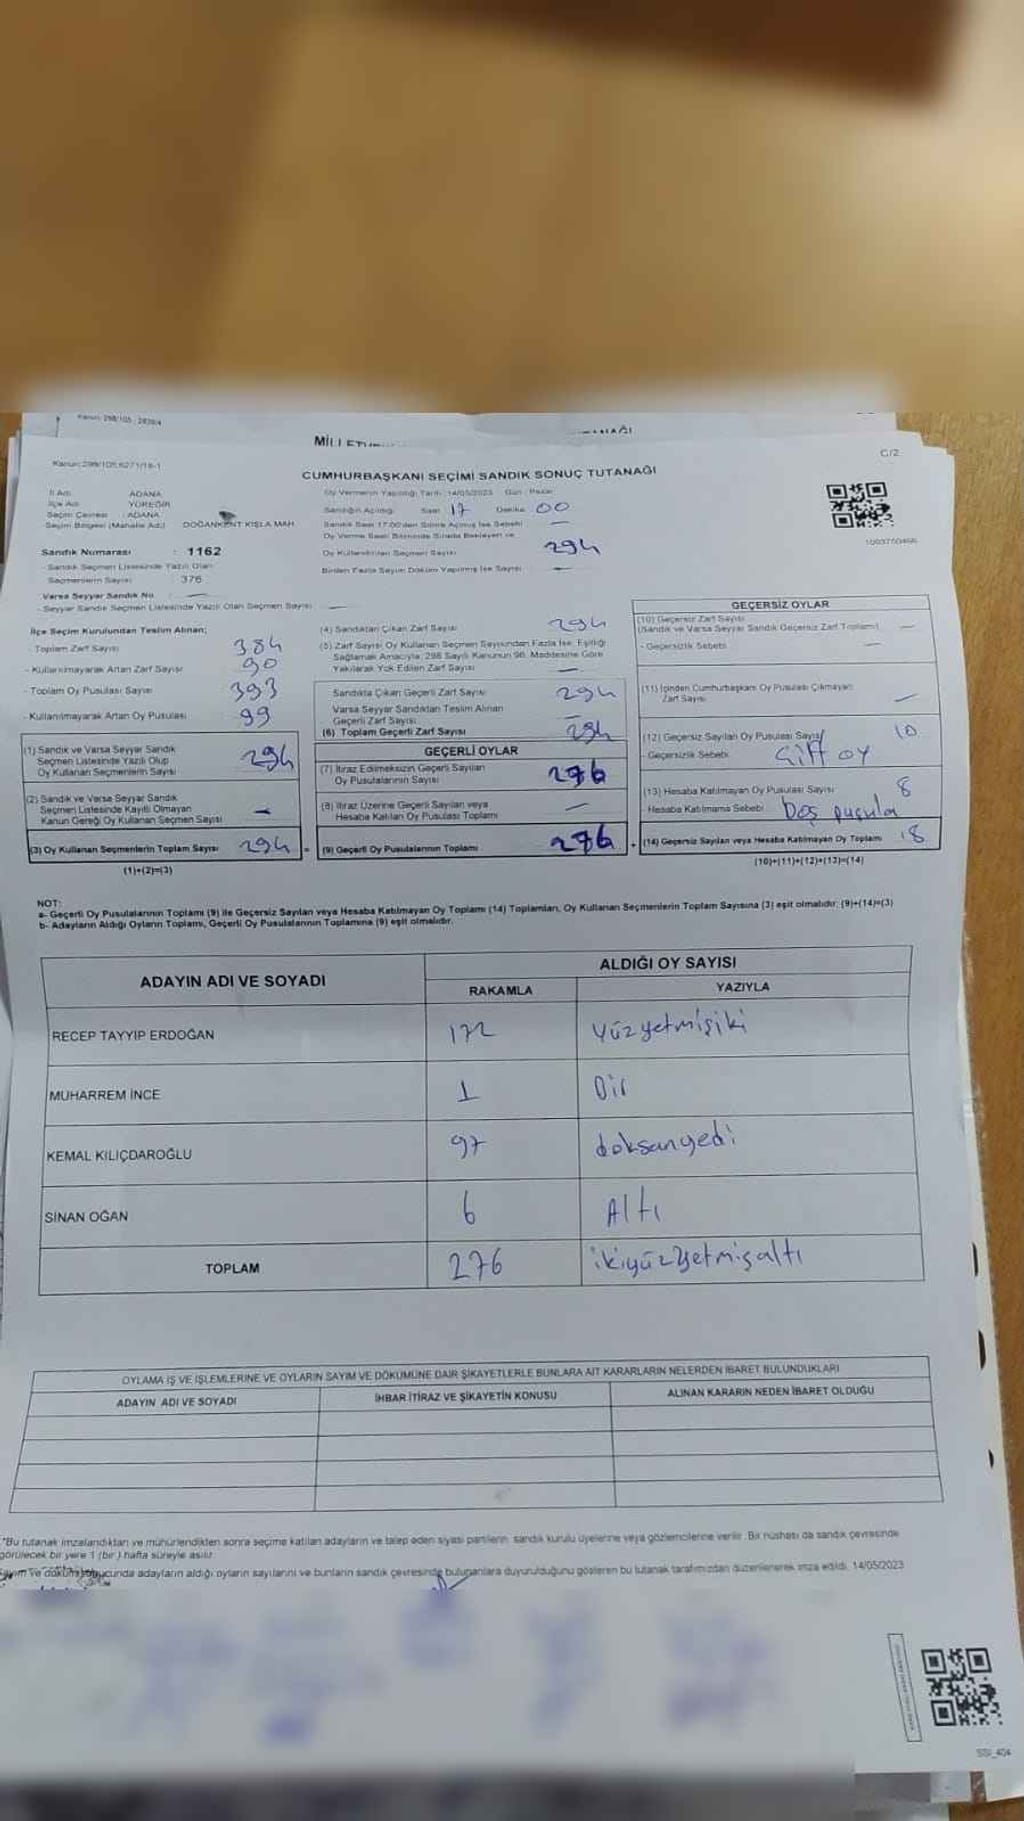 Kanun: 298/105; 2839/4
MİLLETV
ANAĞI
Kanun:298/105;6271/18-1
C/2
CUMHURBAŞKANI SEÇİMİ SANDIK SONUÇ TUTANAĞI
İl Adı : ADANA
İlçe Adı : YÜREĞİR
Seçim Çevresi : ADANA
Seçim Bölgesi (Mahalle Adı) : DOĞANKENT KIŞLA MAH
Sandık Numarası : 1162
- Sandık Seçmen Listesinde Yazılı Olan
Seçmenlerin Sayısı : 376
Varsa Seyyar Sandık No : —
- Seyyar Sandık Seçmen Listesinde Yazılı Olan Seçmen Sayısı : —
Oy Vermenin Yapıldığı Tarih : 14/05/2023 Gün : Pazar
Sandığın Açıldığı Saat 17 Dakika 00
Sandık Saat 17:00'den Sonra Açılmış İse Sebebi —
Oy Verme Saati Bitiminde Sırada Bekleyen ve
Oy Kullandırılan Seçmen Sayısı 294
Birden Fazla Sayım Döküm Yapılmış İse Sayısı —
İlçe Seçim Kurulundan Teslim Alınan;
- Toplam Zarf Sayısı 384
- Kullanılmayarak Artan Zarf Sayısı 90
- Toplam Oy Pusulası Sayısı 393
- Kullanılmayarak Artan Oy Pusulası 99
(1) Sandık ve Varsa Seyyar Sandık
Seçmen Listesinde Yazılı Olup
Oy Kullanan Seçmenlerin Sayısı 294
(2) Sandık ve Varsa Seyyar Sandık
Seçmen Listesinde Kayıtlı Olmayan
Kanun Gereği Oy Kullanan Seçmen Sayısı —
(3) Oy Kullanan Seçmenlerin Toplam Sayısı 294 =
(1)+(2)=(3)
(4) Sandıktan Çıkan Zarf Sayısı 294
(5) Zarf Sayısı Oy Kullanan Seçmen Sayısından Fazla İse, Eşitliği
Sağlamak Amacıyla; 298 Sayılı Kanunun 98. Maddesine Göre
Yakılarak Yok Edilen Zarf Sayısı —
Sandıkta Çıkan Geçerli Zarf Sayısı 294
Varsa Seyyar Sandıktan Teslim Alınan
Geçerli Zarf Sayısı —
(6) Toplam Geçerli Zarf Sayısı 294
GEÇERLİ OYLAR
(7) İtiraz Edilmeksizin Geçerli Sayılan
Oy Pusulalarının Sayısı 276
(8) İtiraz Üzerine Geçerli Sayılan veya
Hesaba Katılan Oy Pusulaları Toplamı —
(9) Geçerli Oy Pusulalarının Toplamı 276 +
GEÇERSİZ OYLAR
(10) Geçersiz Zarf Sayısı
(Sandık ve Varsa Seyyar Sandık Geçersiz Zarf Toplamı) —
- Geçersizlik Sebebi —
(11) İçinden Cumhurbaşkanı Oy Pusulası Çıkmayan
Zarf Sayısı —
(12) Geçersiz Sayılan Oy Pusulası Sayısı 10
- Geçersizlik Sebebi Çift oy
(13) Hesaba Katılmayan Oy Pusulası Sayısı 8
Hesaba Katılmama Sebebi boş pusula
(14) Geçersiz Sayılan veya Hesaba Katılmayan Oy Toplamı 18
(10)+(11)+(12)+(13)=(14)
NOT:
a- Geçerli Oy Pusulalarının Toplamı (9) ile Geçersiz Sayılan veya Hesaba Katılmayan Oy Toplamı (14) Toplamları, Oy Kullanan Seçmenlerin Toplam Sayısına (3) eşit olmalıdır; (9)+(14)=(3)
b- Adayların Aldığı Oyların Toplamı, Geçerli Oy Pusulalarının Toplamına (9) eşit olmalıdır.
ADAYIN ADI VE SOYADI
ALDIĞI OY SAYISI
RAKAMLA YAZIYLA
RECEP TAYYIP ERDOĞAN 172 Yüzyetmişiki
MUHARREM İNCE 1 Bir
KEMAL KILIÇDAROĞLU 97 doksanyedi
SİNAN OĞAN 6 Altı
TOPLAM 276 ikiyüzyetmişaltı
OYLAMA İŞ VE İŞLEMLERİNE VE OYLARIN SAYIM VE DÖKÜMÜNE DAİR ŞİKAYETLERLE BUNLARA AİT KARARLARIN NELERDEN İBARET BULUNDUKLARI
ADAYIN ADI VE SOYADI İHBAR İTİRAZ VE ŞİKAYETİN KONUSU ALINAN KARARIN NEDEN İBARET OLDUĞU
*Bu tutanak imzalandıktan ve mühürlendikten sonra seçime katılan adayların ve talep eden siyasi partilerin sandık kurulu üyelerine veya gözlemcilerine verilir. Bir nüshası da sandık çevresinde
görülecek bir yere 1 (bir ) hafta süreyle asılır.
Sayım ve döküm sonucunda adayların aldığı oyların sayılarını ve bunların sandık çevresinde bulunanlara duyurulduğunu gösteren bu tutanak tarafımızdan düzenlenerek imza edildi. 14/05/2023
SSI_404